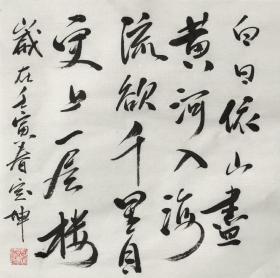 白日依山盡
黄河入海
流欲千里目
更上一层楼
歲在壬寅春宝坤